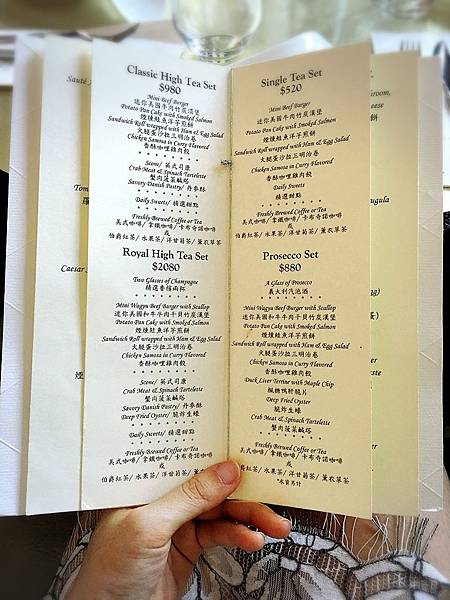 Classic High Tea Set
$980
Mini Beef Burger
迷你美國牛肉竹炭漢堡
Potato Pan Cake with Smoked Salmon
煙燻鮭魚洋芋煎餅
Sandwich Roll wrapped with Ham & Egg Salad
火腿蛋沙拉三明治卷
Chicken Samosa in Curry Flavored
香酥咖哩雞肉餃
* * * * * * *
Scene/ 英式司康
Crab Meat & Spinach Tartelette
蟹肉菠菜鹹塔
Savory Danish Pastry/ 丹麥酥
* * * * * * *
Daily Sweets/ 精選甜點
* * * * * * *
Freshly Brewed Coffee or Tea
美式咖啡/ 拿鐵咖啡/ 卡布奇諾咖啡
或
伯爵紅茶/ 水果茶/ 洋甘菊茶/ 薰衣草茶
Royal High Tea Set
$2080
Two Glasses of Champagne
精選香檳兩杯
* * * * * * *
Mini Wagyu Beef Burger with Scallop
迷你美國和牛牛肉干貝竹炭漢堡
Potato Pan Cake with Smoked Salmon
煙燻鮭魚洋芋煎餅
Sandwich Roll wrapped with Ham & Egg Salad
火腿蛋沙拉三明治卷
Chicken Samosa in Curry Flavored
香酥咖哩雞肉餃
* * * * * * *
Scene/ 英式司康
Crab Meat & Spinach Tartelette
蟹肉菠菜鹹塔
Savory Danish Pastry/ 丹麥酥
Deep Fried Oyster/ 脆炸生蠔
* * * * * * *
Daily Sweets/ 精選甜點
* * * * * * *
Freshly Brewed Coffee or Tea
美式咖啡/ 拿鐵咖啡/ 卡布奇諾咖啡
或
伯爵紅茶/ 水果茶/ 洋甘菊茶/ 薰衣草茶
Single Tea Set
$520
Mini Beef Burger
迷你美國牛肉竹炭漢堡
Potato Pan Cake with Smoked Salmon
煙燻鮭魚洋芋煎餅
Sandwich Roll wrapped with Ham & Egg Salad
火腿蛋沙拉三明治卷
Chicken Samosa in Curry Flavored
香酥咖哩雞肉餃
Daily Sweets
精選甜點
* * * * * * *
Freshly Brewed Coffee or Tea
美式咖啡/ 拿鐵咖啡/ 卡布奇諾咖啡
或
伯爵紅茶/ 水果茶/ 洋甘菊茶/ 薰衣草茶
Prosecco Set
$880
A Glass of Prosecco
義大利汽泡酒
* * * * * * *
Mini Wagyu Beef Burger with Scallop
迷你美國和牛牛肉干貝竹炭漢堡
Potato Pan Cake with Smoked Salmon
煙燻鮭魚洋芋煎餅
Sandwich Roll wrapped with Ham & Egg Salad
火腿蛋沙拉三明治卷
Chicken Samosa in Curry Flavored
香酥咖哩雞肉餃
Duck Liver Terrine with Maple Chip
楓糖鴨肝脆片
Deep Fried Oyster
脆炸生蠔
Crab Meat & Spinach Tartelette
蟹肉菠菜鹹塔
* * * * * * *
Freshly Brewed Coffee or Tea
美式咖啡/ 拿鐵咖啡/ 卡布奇諾咖啡
或
伯爵紅茶/ 水果茶/ 洋甘菊茶/ 薰衣草茶
Sauté
Tom
Caesar
煙
eese
ugula